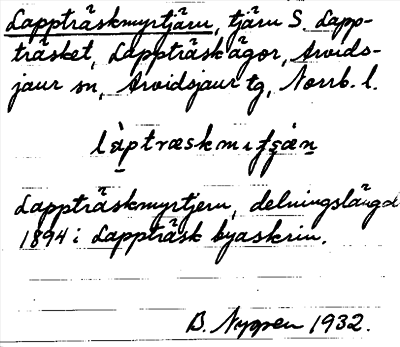 Lappträskmyrtjärn, tjärn S. Lapp-
träsket, Lappträsk ägor, Arvids-
jaur sn, Arvidsjaur tg, Norrb. l.
Lappträskmyrtjern, delningslängd
1894 i Lappträsk byaskrin.
B. Nygren 1932.